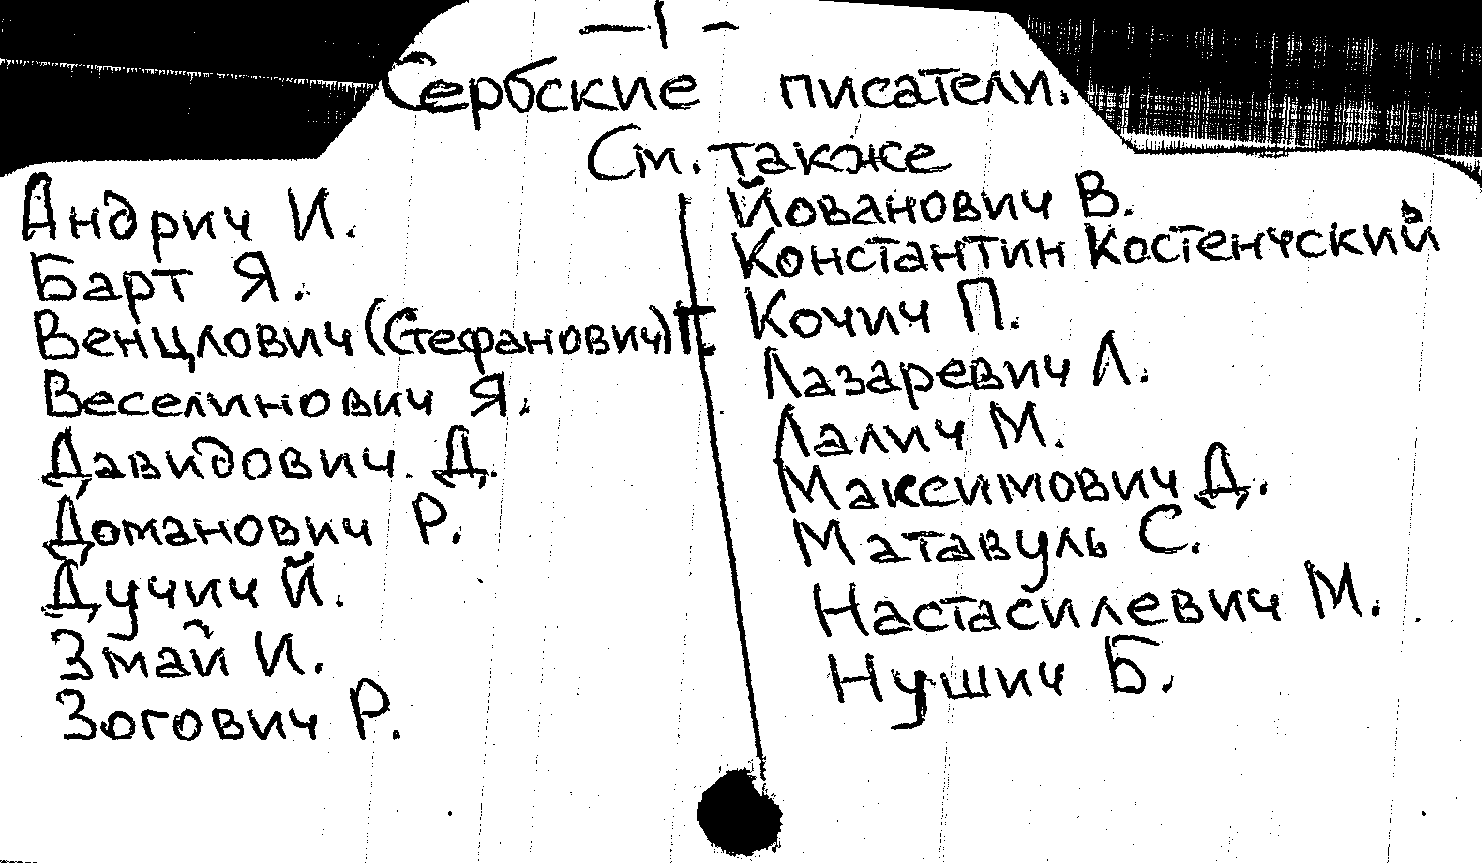 — 1 —
Сербские писатели.
См. также
Андрич И.
Барт Я.
Венцлович (Стефанович) Г.
Веселинович Я.
Давидович Д.
Доманович Р.
Дучич Й.
Змай Й.
Зогович Р.
Йованович В.
Константин Костенчский
Кочич П.
Лазаревич Л.
Лалич М.
Максимович Д.
Матавуль С.
Настасилевич М.
Нушич Б.